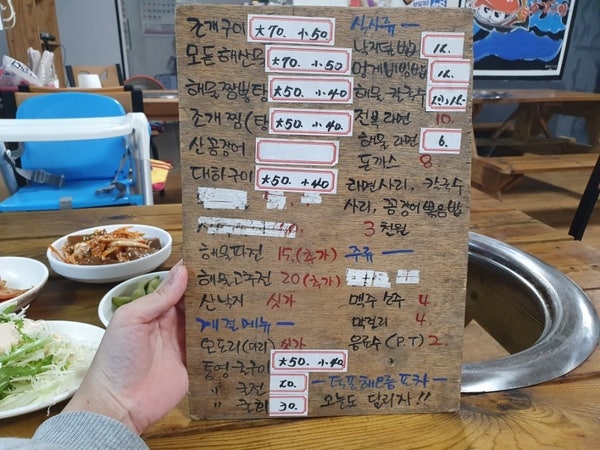 조개구이 大70. 小50
모듬해산물 大70. 小50
해물짬뽕탕 大50. 小40.
조개찜(탕) 大50. 小40.
산꼼장어
대하구이 大50. 小40
해물파전 15.(추가)
해물고추전 20(추가)
산낙지 싯가
계절메뉴 —
오도리(마리) 싯가
통영 굴구이 大50. 小40.
〃 굴전 20.
〃 굴회 30.
식사류 —
낙지덮밥 12.
멍게비빔밥 12.
해물 칼국수
전복라면 10.
해물라면 6.
돈까스 8
라면사리, 칼국수
사리, 꼼장어볶음밥
3천원
주류 —
맥주 소주 4.
막걸리 4
음료수 (P.T) 2
오늘도 달리자!!